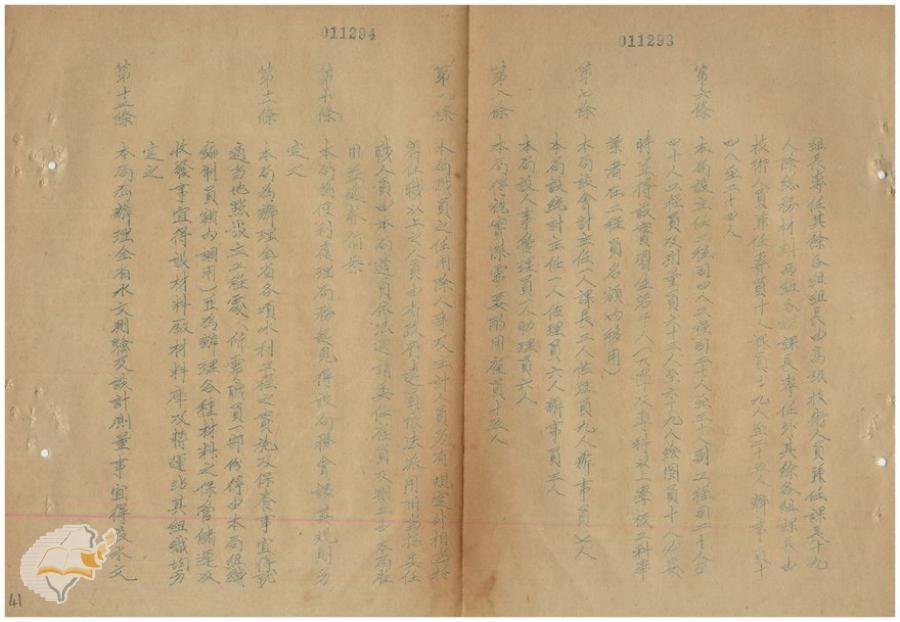 011293
組長專任其餘各組組長由高級技術人員兼任課長十九
人除總務材料兩組各課長專任外其餘各組課長由
技術人員兼任專員十人課員十九人至二十五人辦事員十
八人至二十四人
第六條 本局設主任工程司四人工程司二十人至三十人副工程司二十人至
四十人工程員及測量員六十三人至六十九人繪圖員十八人必要
時並得設實習生若干人(大學以專科及工業校工科畢
業者在工程員名額內移用)
第七條 本局設會計主任一人課長二人佐理員九人辦事員七人
本局設統計主任一人佐理員六人辦事員三人
本局設人事管理員一人助理員六人
第八條 本局得視實際需要酌用雇員十五人
011294
第九條 本局職員之任用除人事及主計人員另有規定外相當於
荐任職以上之人員由省政府遴員依法派用相當於委任
職人員由本局遴員依法
用並送省備案
第十條 本局為便利處理局務起見得設局務會議其規則另
定之
第十一條 本局為辦理全省各項水利工程之實施及保養事宜得於
適當地點設立工程處(所需職員一部份得由本局組織
編制員額內調用)並為辦理各種材料之保管儲運及
收發事宜得設材料廠材料庫及轉運站其組織均另
定之
第十二條 本局為辦理全省水文測驗及設計測量事宜得設水文
41